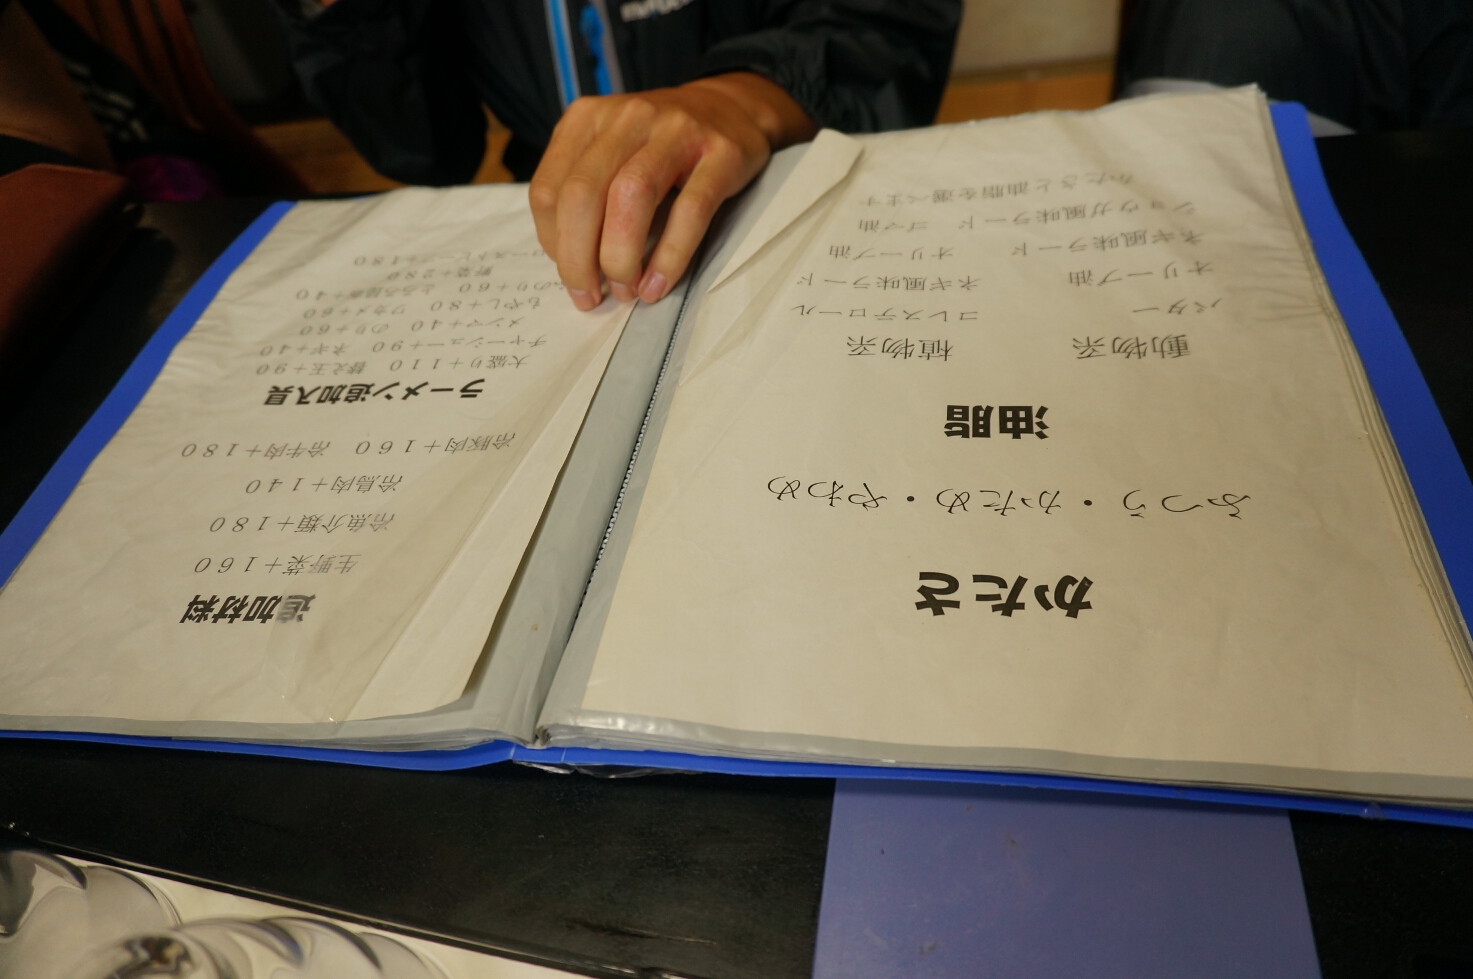 かたさ
ふつう・かため・やわめ
油脂
動物系 植物系
バター コレステロール
オリーブ油 ネギ風味ラード
ネギ風味ラード オリーブ油
ショウガ風味ラード ゴマ油
かたさと油脂を選べます
追加材料
生野菜+160
冷魚介類+180
冷鳥肉+140
冷豚肉+160 冷牛肉+180
ラーメン追加入具
大盛り+110 替え玉+90
チャーシュー+90 ネギ+40
メンマ+40 のり+60
もやし+80 ワカメ+60
ふのり+60 とろろ昆布+40
野菜+280
ローストビーフ+480